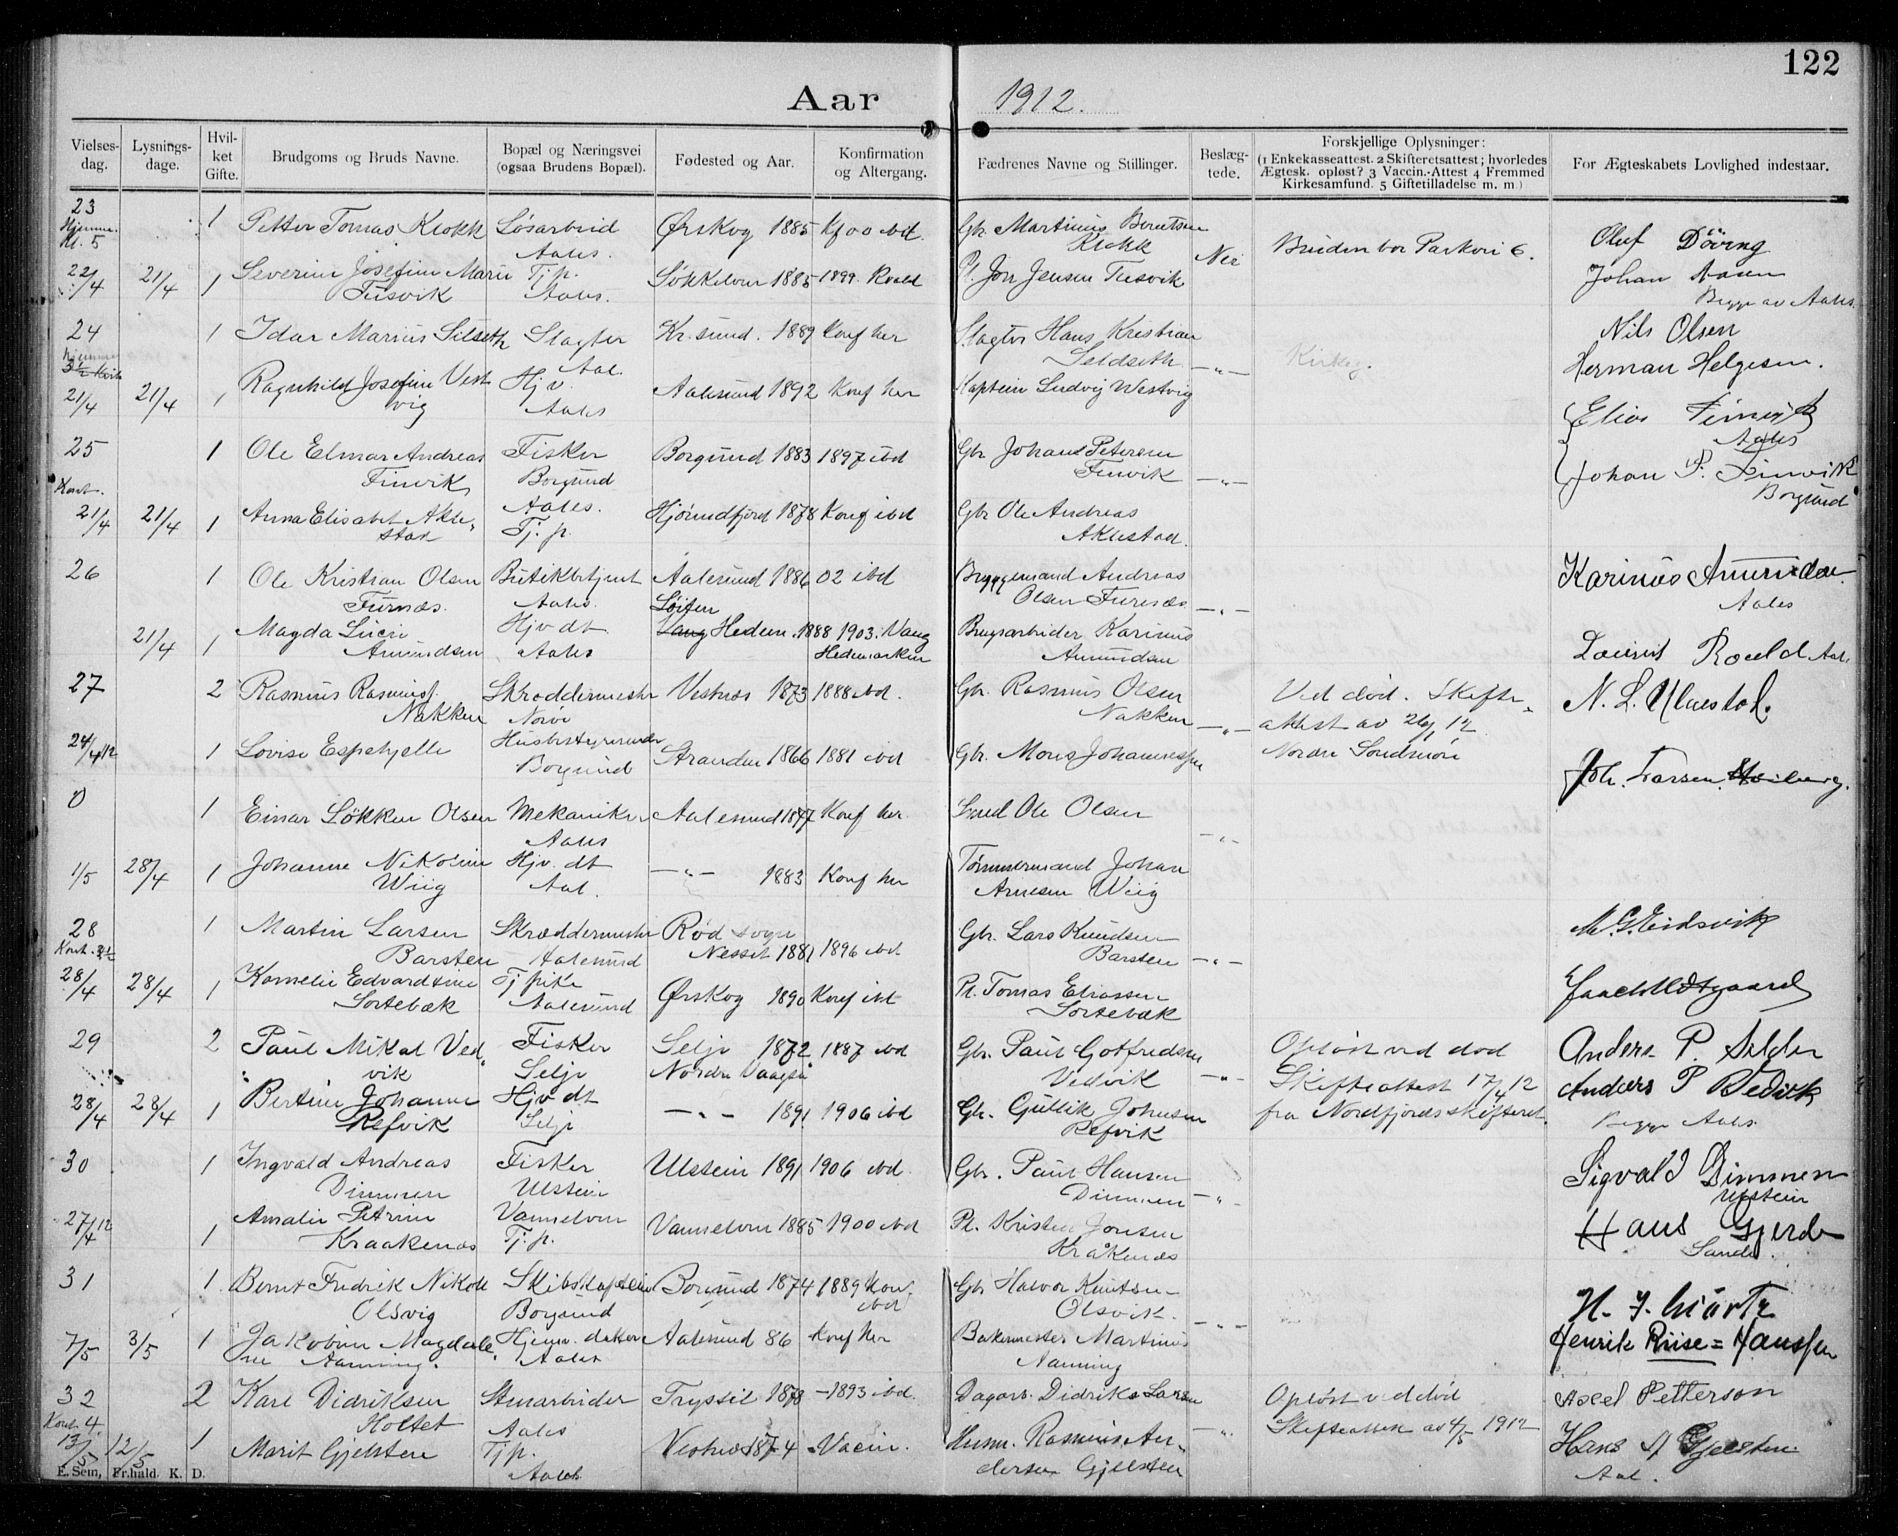 122
Aar 1912.
Vielses-dag.
Lysnings-dage.
Hvil-ket Gifte.
Brudgoms og Bruds Navne.
Bopæl og Næringsvei (ogsaa Brudens Bopæl).
Fødested og Aar.
Konfirmation og Altergang.
Fædrenes Navne og Stillinger.
Beslæg-tede.
Forskjellige Oplysninger: (1 Enkekasseattest. 2 Skifteretsattest; hvorledes Ægtesk. opløst? 3 Vaccin.-Attest 4 Fremmed Kirkesamfund. 5 Giftetilladelse m. m.)
For Ægteskabets Lovlighed indestaar.
23 1 Petter Tomas Klokk Løsarbeid Ørskog 1885 Gbr. Martinus Berntsen Oluf Döving
Kl. 5 Aales. Klokk Nei Bruden bor Parkvei 6.
22/4 21/4 1 Severine Josefine Marie Tj.p. Søkkelven 1885 1899 Pl. Jon Jensen Tusvik Johan Aasen
Tusvik Aales. Begge av Aales.
24 1 Idar Marius Silseth Slagter Kr.sund. 1889 Konf her Slagter Hans Kristian Nils Olsen
Aal. Seldseth -"- Herman Helgesen.
21/4 21/4 1 Ragnhild Josefine Vest Hjv. Aalesund 1892 Konf her Kaptein Ludvig Westvig
vig Aales Elias
25 1 Ole Elmar Andreas Fisker Borgund 1883 1897 ibd Gbr Johan Petersen Aales
Finvik Borgund Finvik -"- Johan P. Finvik
Kont. Borgund
21/4 21/4 1 Anna Elisabet Akle- Aales. Hjørundfjord 1878 Konf ibd Gbr Ole Andreas
stad Tj.p. Aklestad.
26 1 Ole Kristian Olsen Butikbetjent Aalesund 1886 02 ibd Bryggemand Andreas Karinus Amundsen
Furnæs. Aales. Løiten Olsen Furnæs -"- Aales
21/4 1 Magda Lucie Hjv dt. Vang Hedem. 1888 1903. Vang Brugsarbeider Karinus
Amundsen Aales Hedemarken Amundsen Laurits Roald Aal.
27 2 Rasmus Rasmus. Skræddermester Vestnes 1873 1888 ibd. Gbr. Rasmus Olsen Ved død. Skifte-
Nakken Nørve Nakken -"- attest av 26/1 12 N. L. Ulvestad.
24/4 12 1 Lovise Espehjelle Husbestyrerinde Stranden 1866 1881 ibd Gbr. Mons Johannessen Nordre Søndmøre
Borgund Joh. Larsen
0 1 Einar Løkken Olsen Mekaniker Aalesund 1877 Konf her Smed Ole Olsen
Aales -"-
1/5 28/4 1 Johanne Nikoline Hjv. dt -"- 1883 Konf her Tømmermand Johan
Wiig Aal. Arnesen Wiig
28 1 Martin Larsen Skræddermester Rød sogn Gbr. Lars Knudsen M. G. Eidsvik
Kont. Barsten Aalesund Nesset 1881 1896 ibd Barsten -"-
28/4 28/4 1 Kornelie Edvardine Tj pike Ørskog 1890 Konf ibd Pl. Tomas Eliassen
Sortebæk Aalesund Sortebæk
29 2 Paul Mikal Ved- Fisker Selje 1872 1887 ibd Gbr. Paul Gotfredsen Opløst ved død Anders P. Selde
vik Selje Nordre Vaagsø Vedvik -"- Skifteattest 17/4 12 Anders P Vedvik
28/4 28/4 1 Bertine Johanne Hjv dt -"- 1891 1906 ibd Gbr. Gullik Johnsen fra Nordfjords skifteret. Begge Aales.
Refvik Selje Refvik
30 1 Ingvald Andreas Fisker Ulstein 1891 1906 ibd. Gbr. Paul Hansen Sigvald Dimmen
Dimmen Ulstein Dimmen -"- Ulstein
27/4 12 1 Amalie Petrine Vannelven Vannelven 1885 1900 ibd Pl. Kristen Jonsen Hans Gjerde
Kraakenæs Tj.p. Kråkenæs Sande.
31 1 Bernt Fredrik Nikolai Skibskaptein Borgund 1874 1889 Kon. Gbr Halvor Knutsen
Olsvig Borgund ibd Olsvik. -"-
7/5 3/5 1 Jakobine Magdale- Hjemv. datter Aalesund 86 Konf her Bakermester Martinus Henrik Riise-Hanssen
ne Nanning. Aales Nanning
32 2 Karl Didriksen Stenarbeider Tryssil 1878 -1893 ibd. Dagarb. Didrik Larsen Opløst ved død Axel Petterson
Kont. 4. Holtet Aales -"- Skifteattest av 4/5 1912
13/5 12/5 1 Marit Gjelsten Tj.p. Vestnes 1874 Vaccin. Husm. Rasmus An- Hans Gjelsten
Aales dersen Gjelsten Aal.
E. Sem, Fr.hald. K. D.